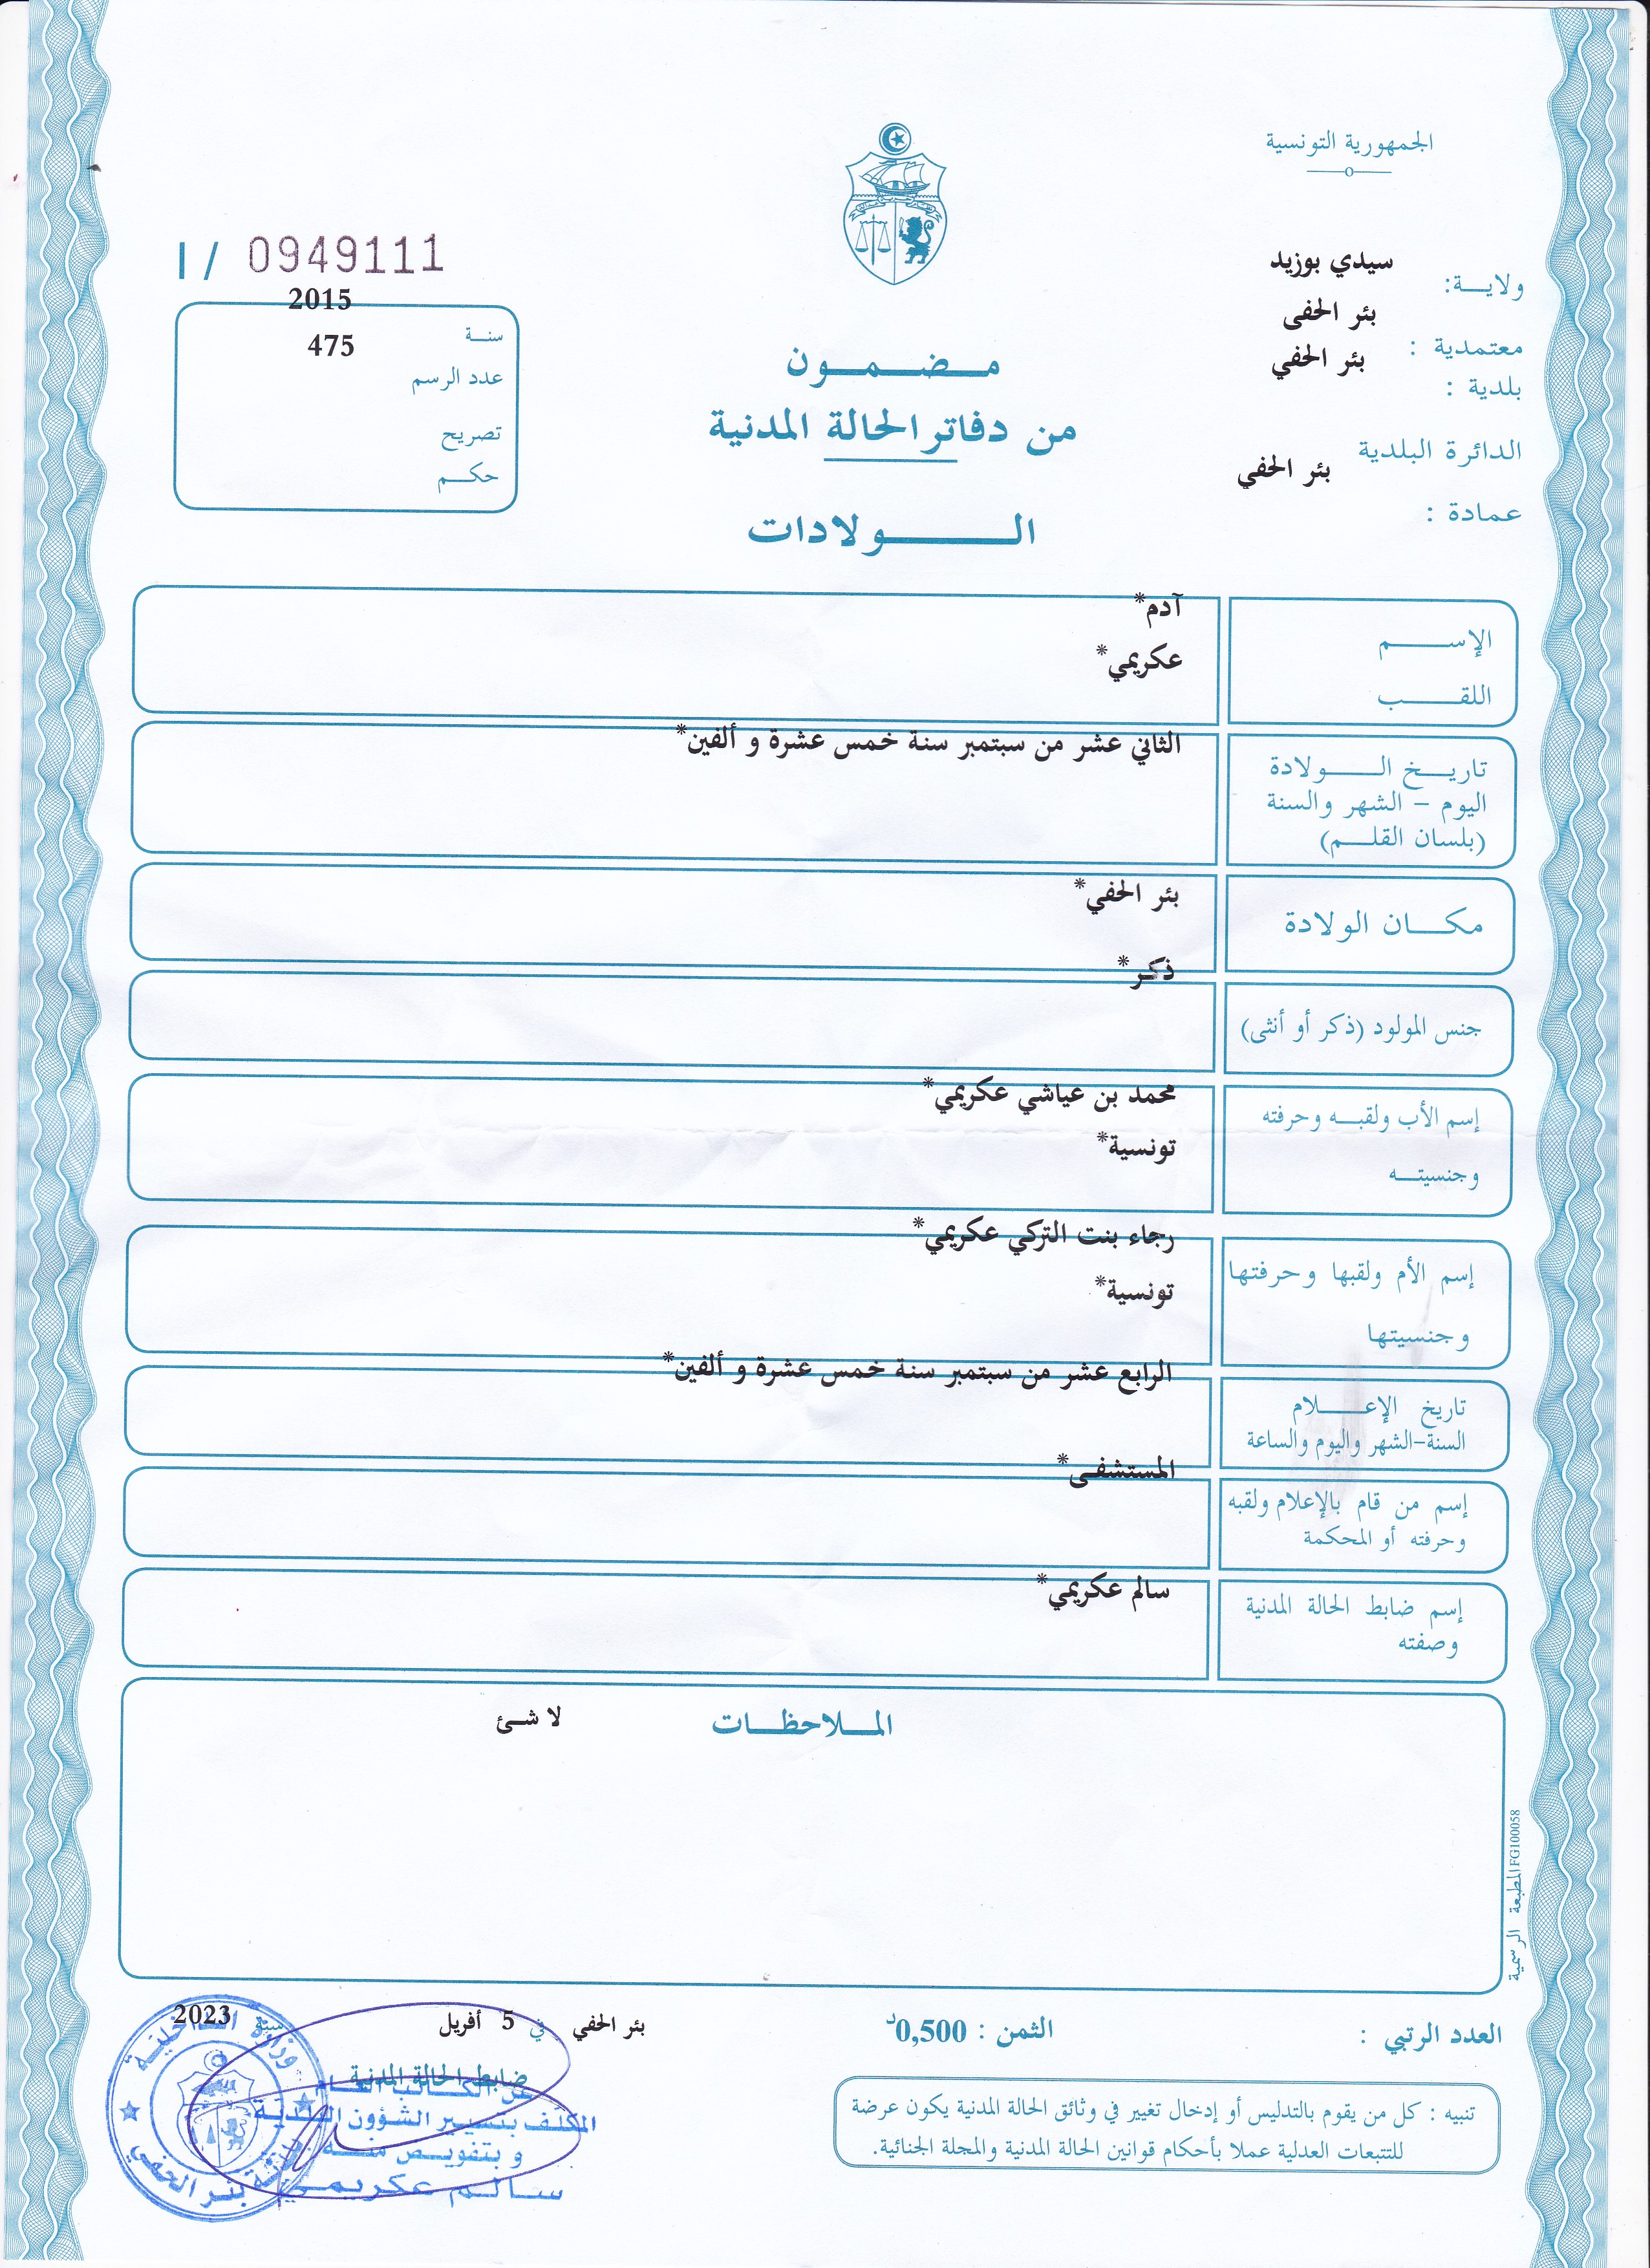 الجمهورية التونسية
I / 0949111
ولايـــة: سيدي بوزيد
معتمدية : بئر الحفى
بلدية : بئر الحفي
الدائرة البلدية بئر الحفي
عمادة :
2015
سنـــة
475
عدد الرسم
تصريح
حكـــم
مــضــمــون
من دفاتر الحالة المدنية
الــــولادات
الإســــم
آدم*
اللقــــب
عكريمي*
تاريــخ الــــولادة
اليوم – الشهر والسنة
(بلسان القلــم)
الثاني عشر من سبتمبر سنة خمس عشرة و ألفين*
مكـــان الولادة
بئر الحفي*
جنس المولود (ذكر أو أنثى)
ذكر*
إسم الأب ولقبــه وحرفته
وجنسيتـــه
محمد بن عياشي عكريمي*
تونسية*
إسم الأم ولقبها وحرفتها
وجنسيتها
رجاء بنت التركي عكريمي*
تونسية*
تاريخ الإعــــلام
السنة-الشهر واليوم والساعة
الرابع عشر من سبتمبر سنة خمس عشرة و ألفين*
إسم من قام بالإعلام ولقبه
وحرفته أو المحكمة
المستشفى*
إسم ضابط الحالة المدنية
وصفته
سالم عكريمي*
المــلاحظــات
لا شئ
المطبعة الرسمية FG100058
العدد الرتبي :
الثمن : 0,500د
بئر الحفي في 5 أفريل سنة 2023
ضابط الحالة المدنية
عن الكــاتب العــام
المكلف بتسيير الشؤون البلدية
و بتفويــض منــه
سالــم عكريمــي
وزارة الداخليـة
بلدية بئر الحفي
تنبيه : كل من يقوم بالتدليس أو إدخال تغيير في وثائق الحالة المدنية يكون عرضة
للتتبعات العدلية عملا بأحكام قوانين الحالة المدنية والمجلة الجنائية.